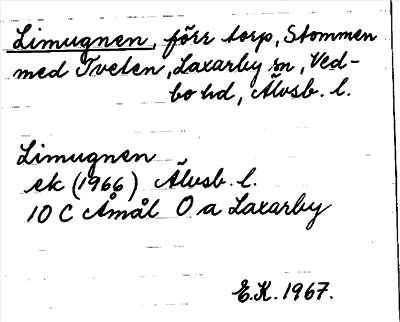 Limugnen, förr torp, Stommen
med Tveten, Laxarby sn, Ved-
bo hd, Älvsb. l.
Limugnen
ek (1966) Älvsb. l.
10 C Åmål O a Laxarby
E.K. 1967.